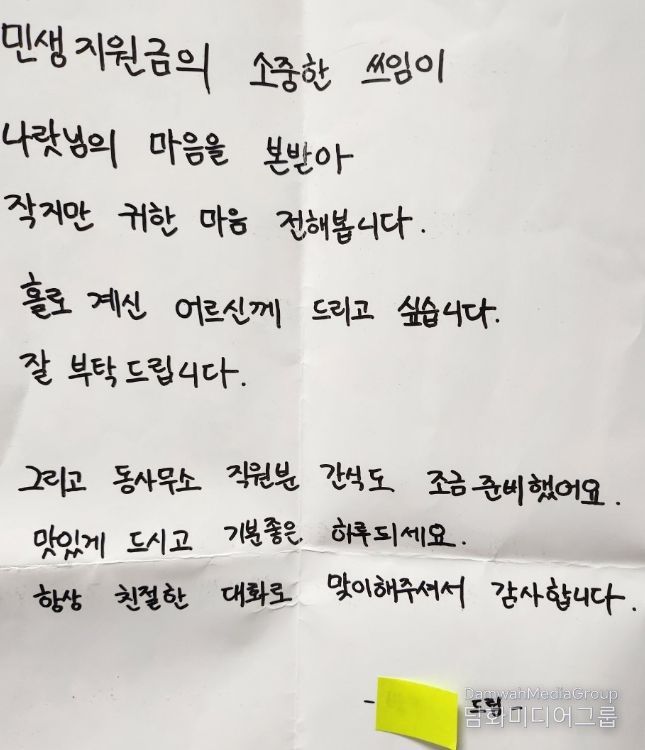 민생지원금의 소중한 쓰임이
나랏님의 마음을 본받아
작지만 귀한 마음 전해봅니다.
홀로 계신 어르신께 드리고 싶습니다.
잘 부탁드립니다.
그리고 동사무소 직원분 간식도 조금 준비했어요.
맛있게 드시고 기분좋은 하루되세요.
항상 친절한 대화로 맞이해주셔서 감사합니다.
- 드림 -
DamwahMediaGroup
담화미디어그룹